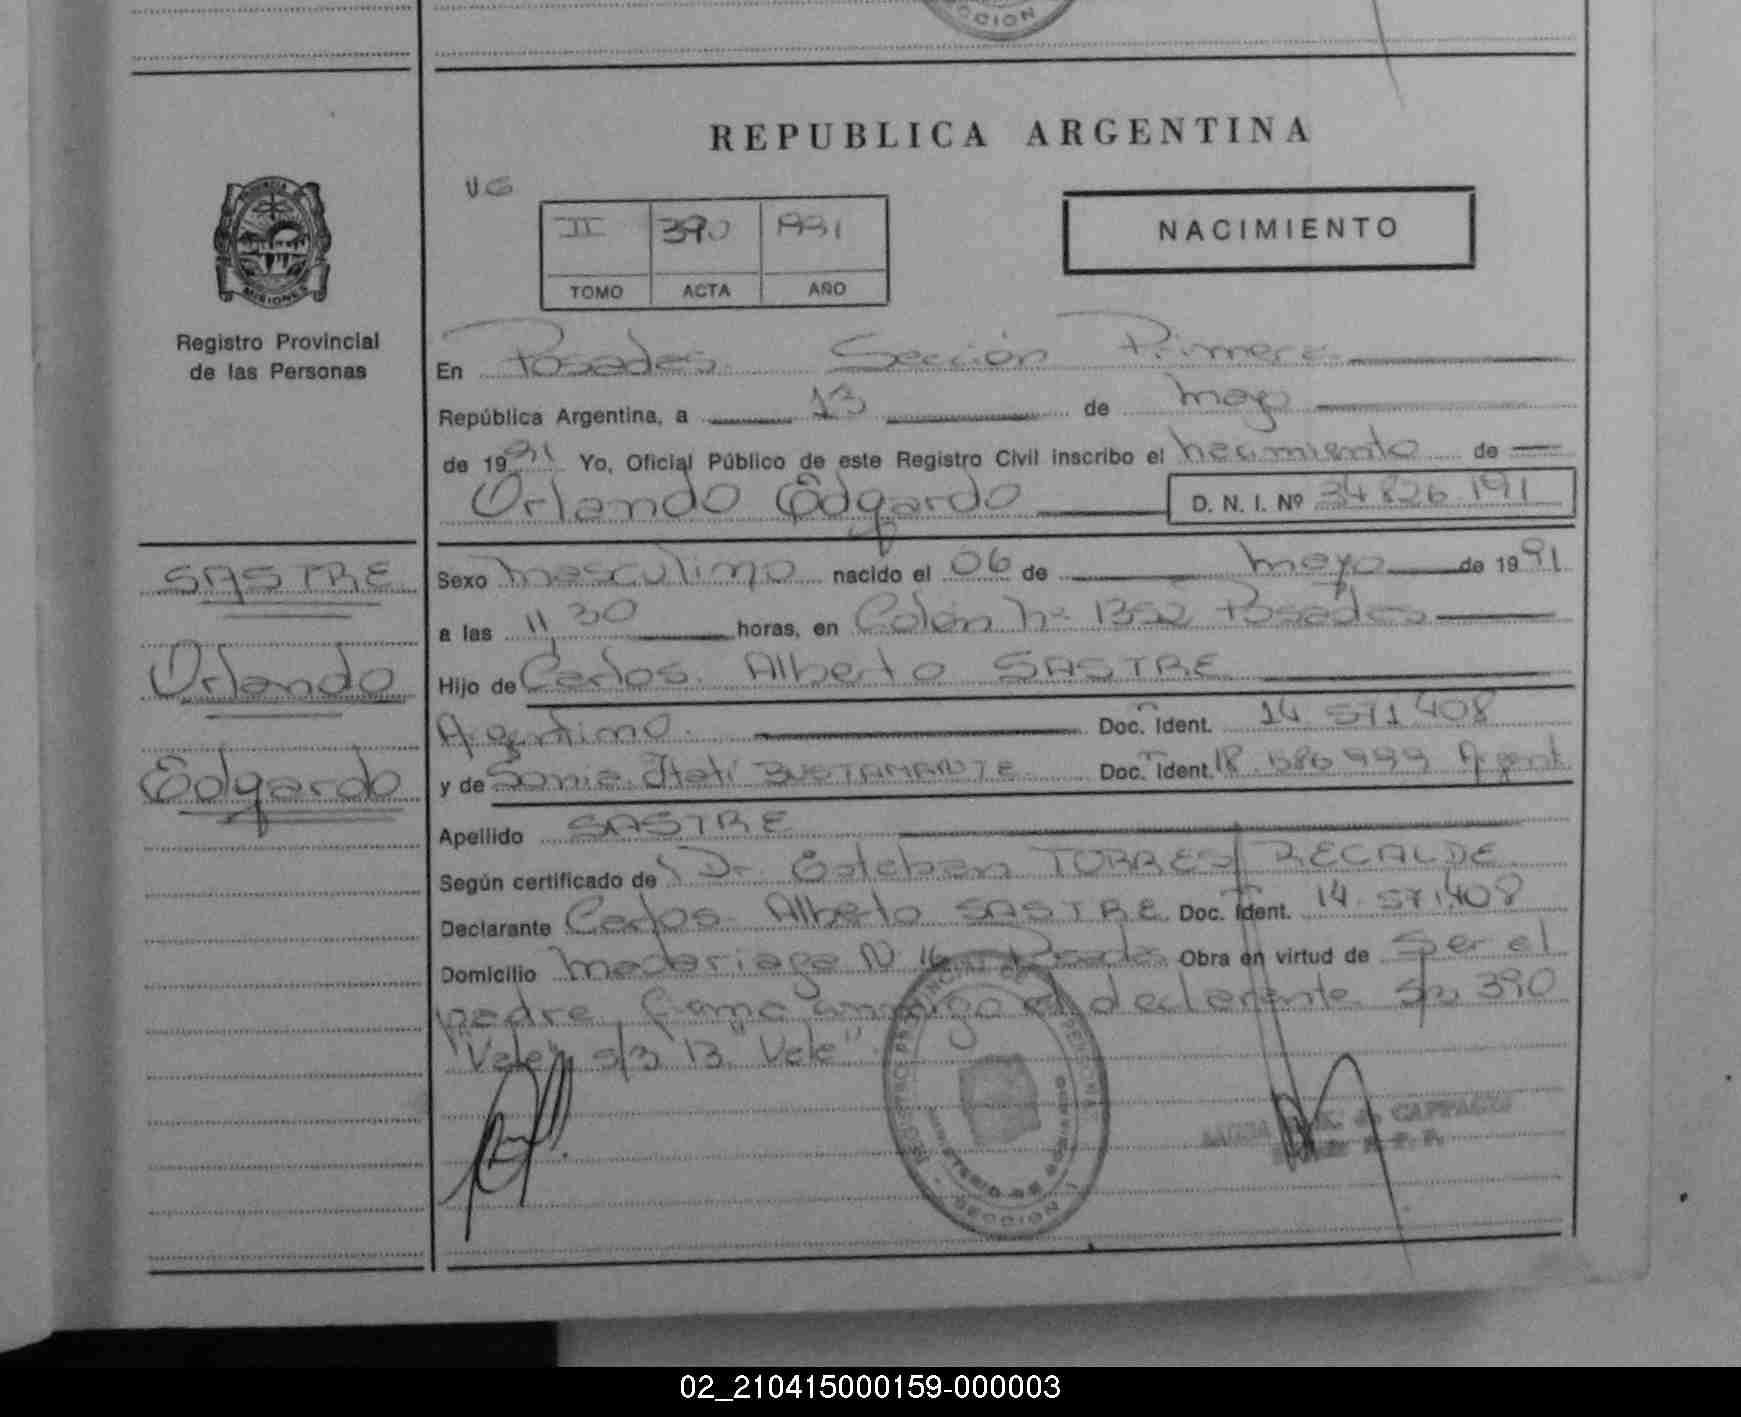 CCION
REPUBLICA ARGENTINA
VG
II 390 1991
TOMO ACTA AÑO
NACIMIENTO
MISIONES
Registro Provincial
de las Personas
En Posadas Sección Primera
República Argentina, a 13 de mayo
de 1991 Yo, Oficial Público de este Registro Civil inscribo el nacimiento de
Orlando Edgardo D. N. I. Nº 34 826 191
SASTRE
Orlando
Edgardo
Sexo masculino nacido el 06 de mayo de 1991
a las 11,30 horas, en Colón Nº 1352 Posadas
Hijo de Carlos Alberto SASTRE
Argentino. Doc. Ident. 14 571 408
y de Sonia Itatí BUSTAMANTE Doc. Ident. 18. 999 Argent
Apellido SASTRE
Según certificado de Dr. Esteban TORRES RECALDE
Declarante Carlos Alberto SASTRE Doc. Ident. 14.571.408
Domicilio Madariaga N Posadas Obra en virtud de ser el
padre, firma conmigo el declarante. S/r 390
"Vale" s/3 13 "Vale".
SECCION 1
02_210415000159-000003